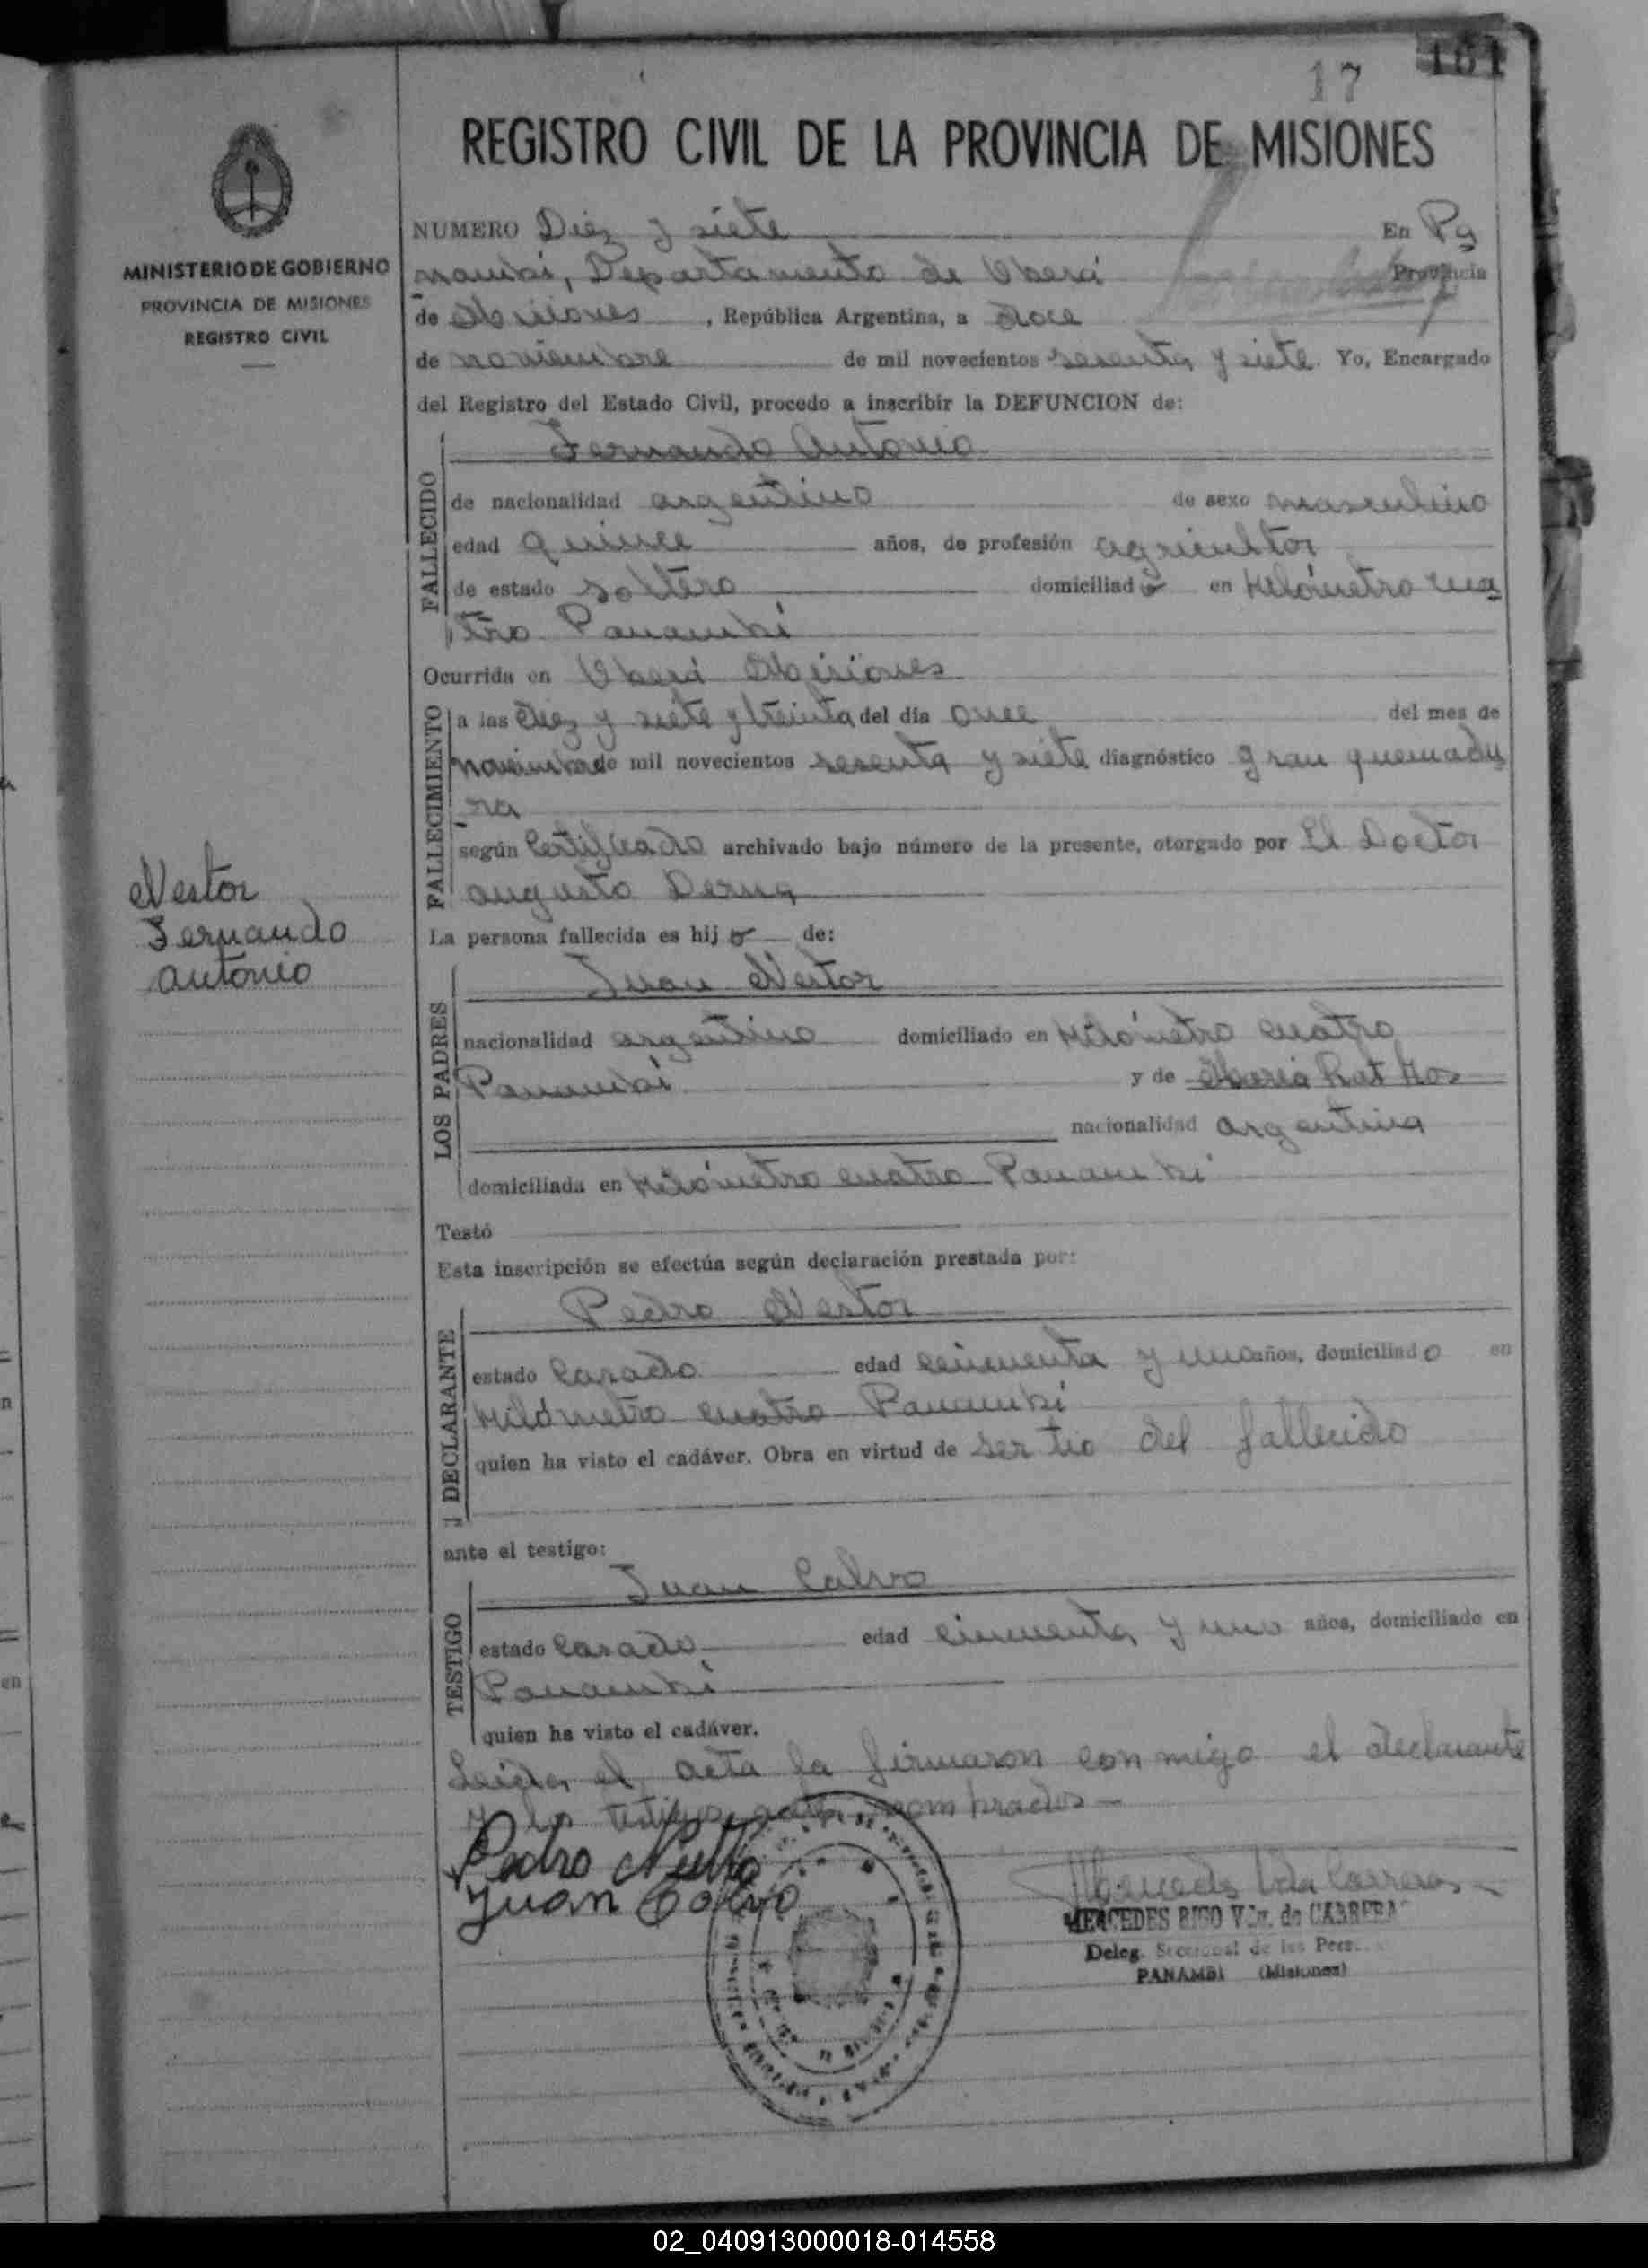 17 161
REGISTRO CIVIL DE LA PROVINCIA DE MISIONES
MINISTERIO DE GOBIERNO
PROVINCIA DE MISIONES
REGISTRO CIVIL
NUMERO Diez y siete En Pa
nambí, Departamento de Oberá Provincia
de Misiones, República Argentina, a doce
de noviembre de mil novecientos sesenta y siete. Yo, Encargado
del Registro del Estado Civil, procedo a inscribir la DEFUNCION de:
FALLECIDO
Fernando Antonio
de nacionalidad argentino de sexo masculino
edad quince años, de profesión agricultor
de estado soltero domiciliado en Kilómetro cua
tro Panambí
Ocurrida en Oberá Misiones
FALLECIMIENTO
a las diez y siete y treinta del día once del mes de
noviembre de mil novecientos sesenta y siete diagnóstico gran quemadu
ra
según Certificado archivado bajo número de la presente, otorgado por El Doctor
Augusto Derna
Nestor
Fernando
Antonio
La persona fallecida es hijo de:
LOS PADRES
Juan Nestor
nacionalidad argentino domiciliado en Kilómetro cuatro
Panambí y de María
nacionalidad argentina
domiciliada en Kilómetro cuatro Panambí
Testó
Esta inscripción se efectúa según declaración prestada por:
DECLARANTE
Pedro Nestor
estado Casado edad cincuenta y uno años, domiciliado en
Kilómetro cuatro Panambí
quien ha visto el cadáver. Obra en virtud de ser tio del fallecido
ante el testigo:
TESTIGO
Juan Calvo
estado Casado edad cincuenta y uno años, domiciliado en
Panambí
quien ha visto el cadáver.
Leida el acta la firmaron conmigo el declarante
y los testigos nombrados
Pedro
Juan Calvo
MERCEDES RIGO Vda. de CABRERA
Deleg. Seccional de las Pers.
PANAMBI (Misiones)
02_040913000018-014558